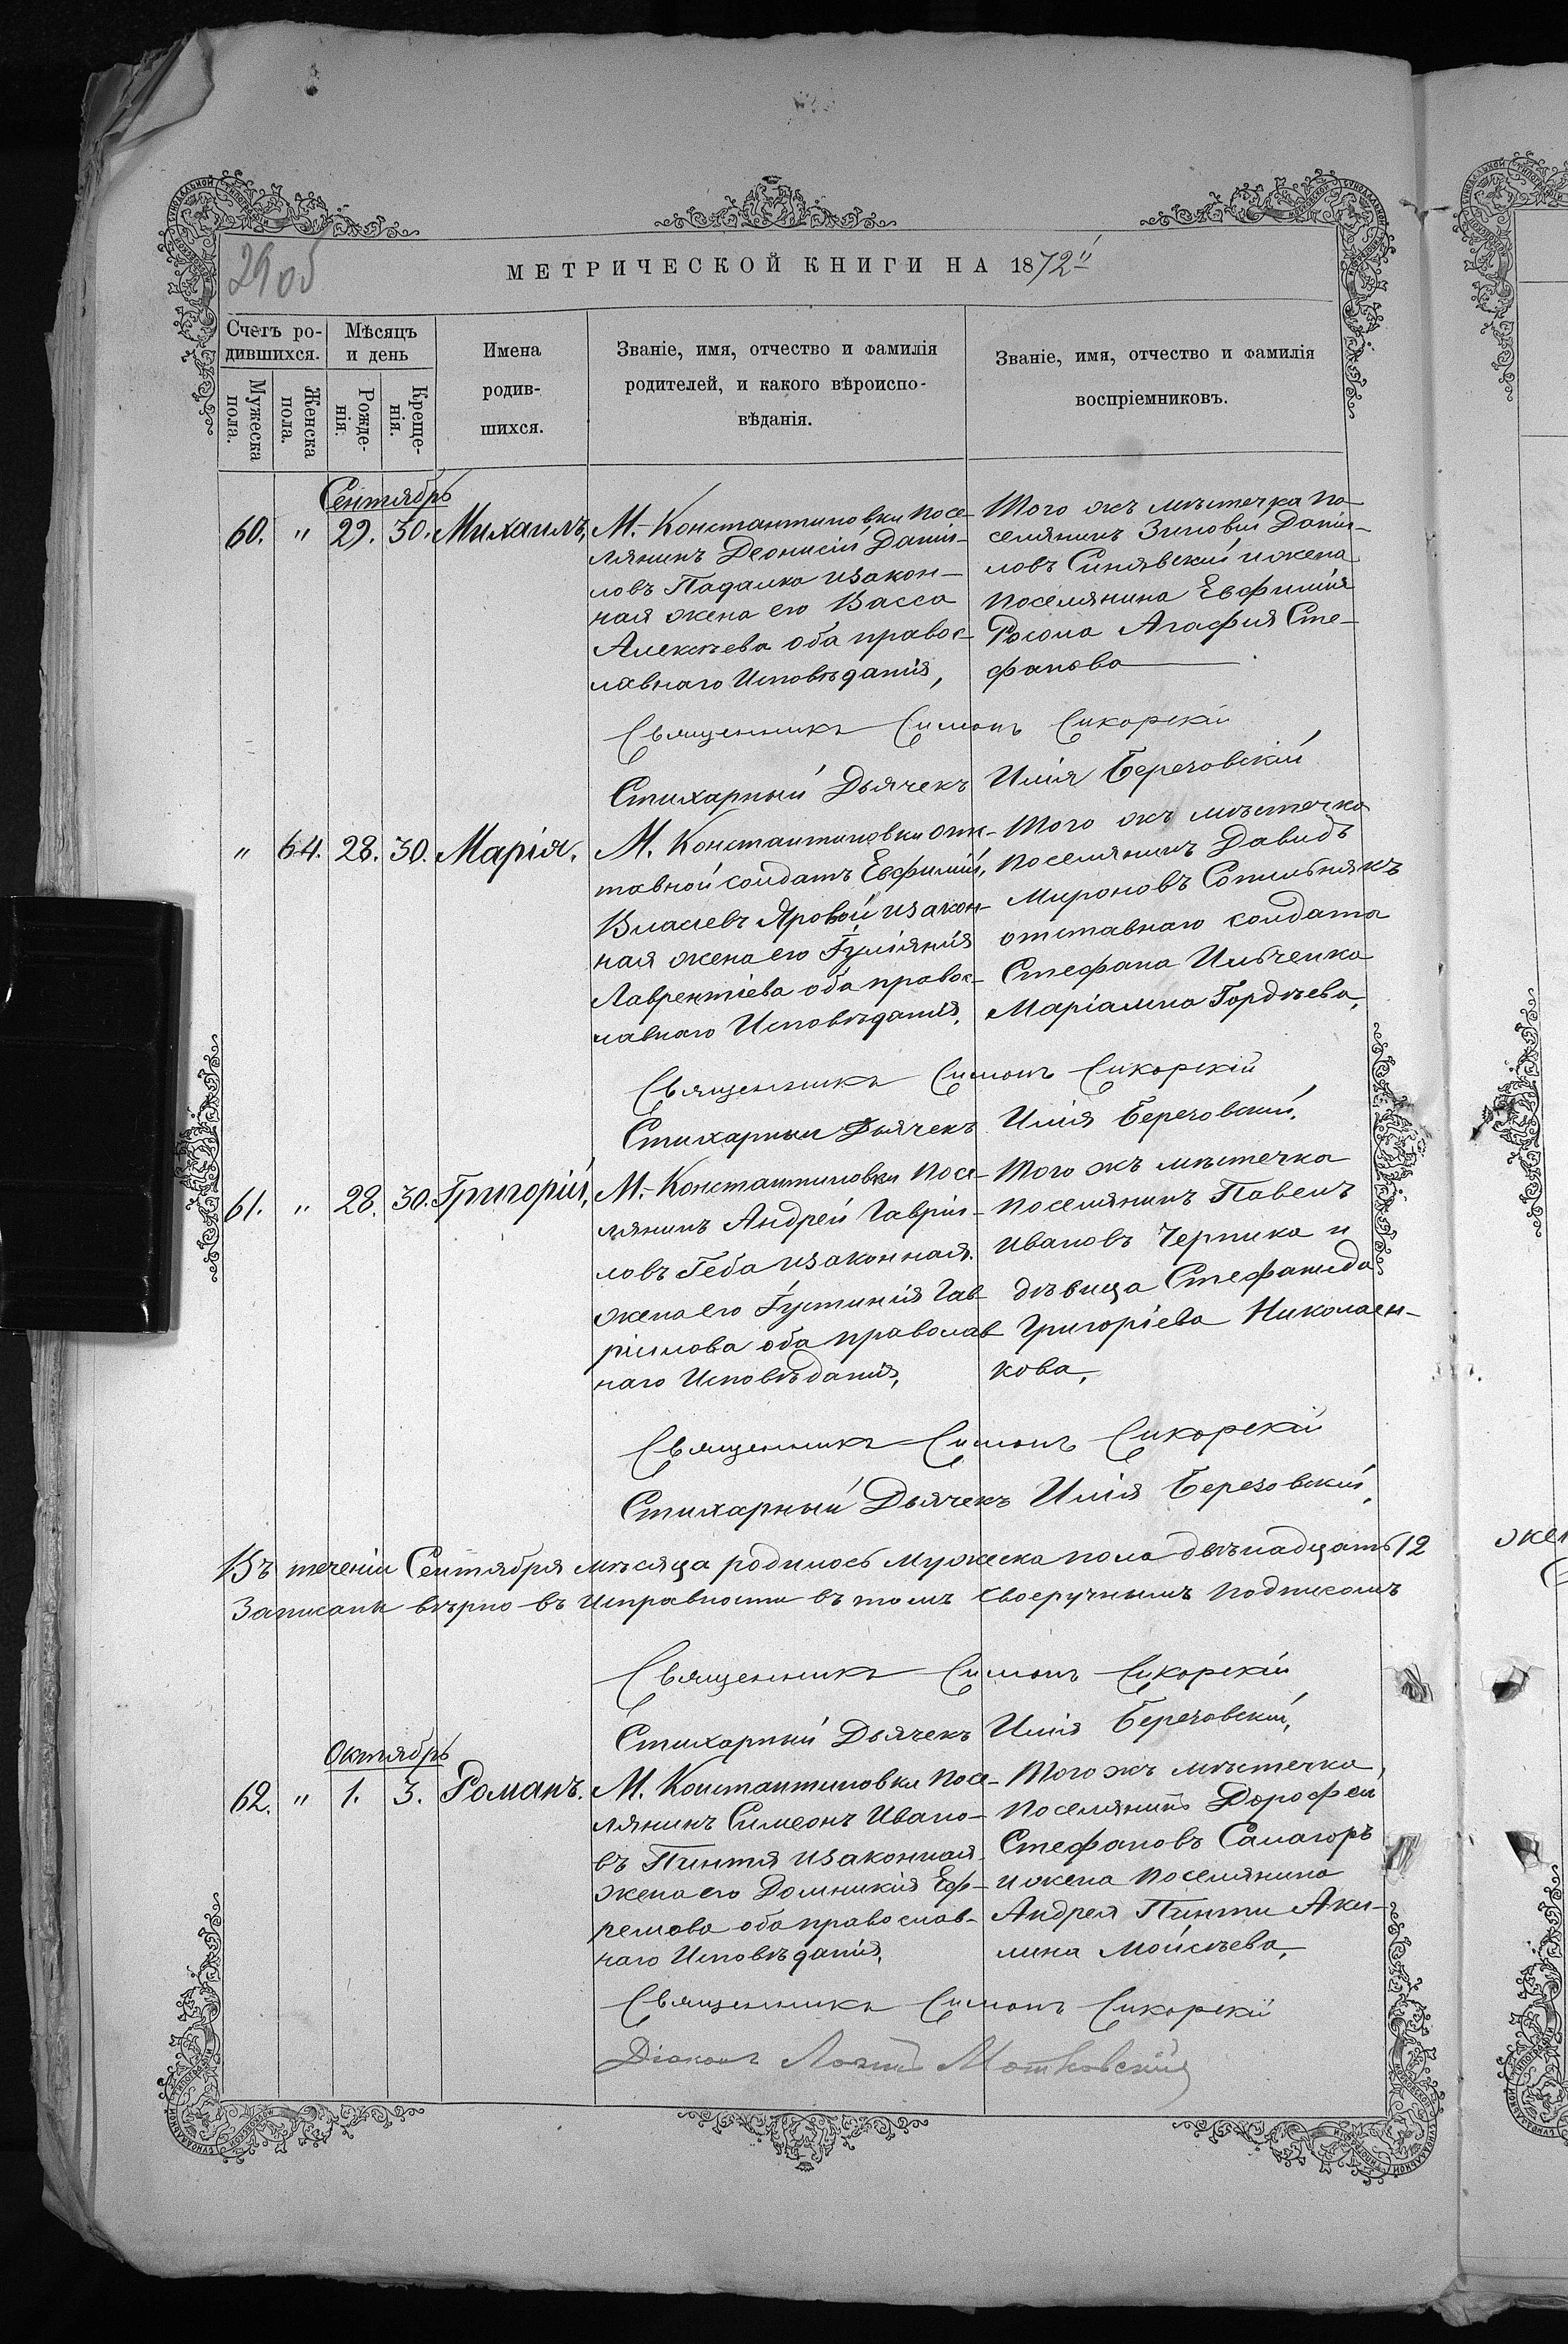 29об
МЕТРИЧЕСКОЙ КНИГИ НА 1872й
Счетъ ро-
дившихся.
Мужеска
пола.
Женска
пола.
Мѣсяцъ
и день
Рожде-
нія.
Креще-
нія.
Имена
родив-
шихся.
Званіе, имя, отчество и фамилія
родителей, и какого вѣроиспо-
вѣданія.
Званіе, имя, отчество и фамилія
воспріемниковъ.
Сентябрь
60. " 29. 30. Михаилъ,
М. Константиновки посе-
лянинъ Деонисій Даніи-
ловъ Падалка изакон-
ная жена его Васса
Алексѣева оба правос-
лавнаго Исповѣданія,
Того жъ мѣстечка по-
селянинъ Зиновій Даніи-
ловъ Синявскій и жена
поселянина Евфимія
Росола Агафія Сте-
фанова
Священникъ Симонъ Сикорскій
Стихарный Дьячекъ Илія Березовскій
" 64. 28. 30. Марія.
М. Константиновки отс-
тавной солдатъ Евфимій,
Власіевъ Яровой изакон-
ная жена его Іуліянія
Лаврентіева оба правос-
лавнаго Исповѣданія.
Того жъ мѣстечка
поселянинъ Давидъ
Мироновъ Сотильнякъ
отставнаго солдата
Стефана Ильченка
Маріамна Гордѣева,
Священникъ Симонъ Сикорскій
Стихарный Дьячекъ Илія Березовскій.
61. " 28. 30. Григорій,
М. Константиновки посе-
лянинъ Андрей Гавріи-
ловъ Геба изаконная
жена его Іустинія Гав-
ріилова оба православ
наго Исповѣданія,
Того жъ мѣстечка
поселянинъ Павелъ
Ивановъ Черника и
дѣвица Стефанида
Григоріева Николаен-
кова,
Священникъ Симонъ Сикорскій
Стихарный Дьячекъ Илія Березовскій,
Въ теченіи Сентября мѣсяца родилось мужеска пола двѣнадцать 12
Записаны вѣрно въ исправности въ томъ своеручнымъ подписомъ
Священникъ Симонъ Сикорскій
Стихарный Дьячекъ Илія Березовскій,
Октябрь
62. " 1. 3. Романъ.
М. Константиновки посе-
лянинъ Симеонъ Ивано-
въ Пинтя изаконная
жена его Домникія Еф-
ремова оба православ-
наго Исповѣданія,
Того жъ мѣстечка,
поселянинъ Дорофей
Стефановъ Самагоръ
и жена поселянина
Андрея Пинти Аки-
лина Мойсѣева,
Священникъ Симонъ Сикорскій
Діаконъ Мотковскій
жен